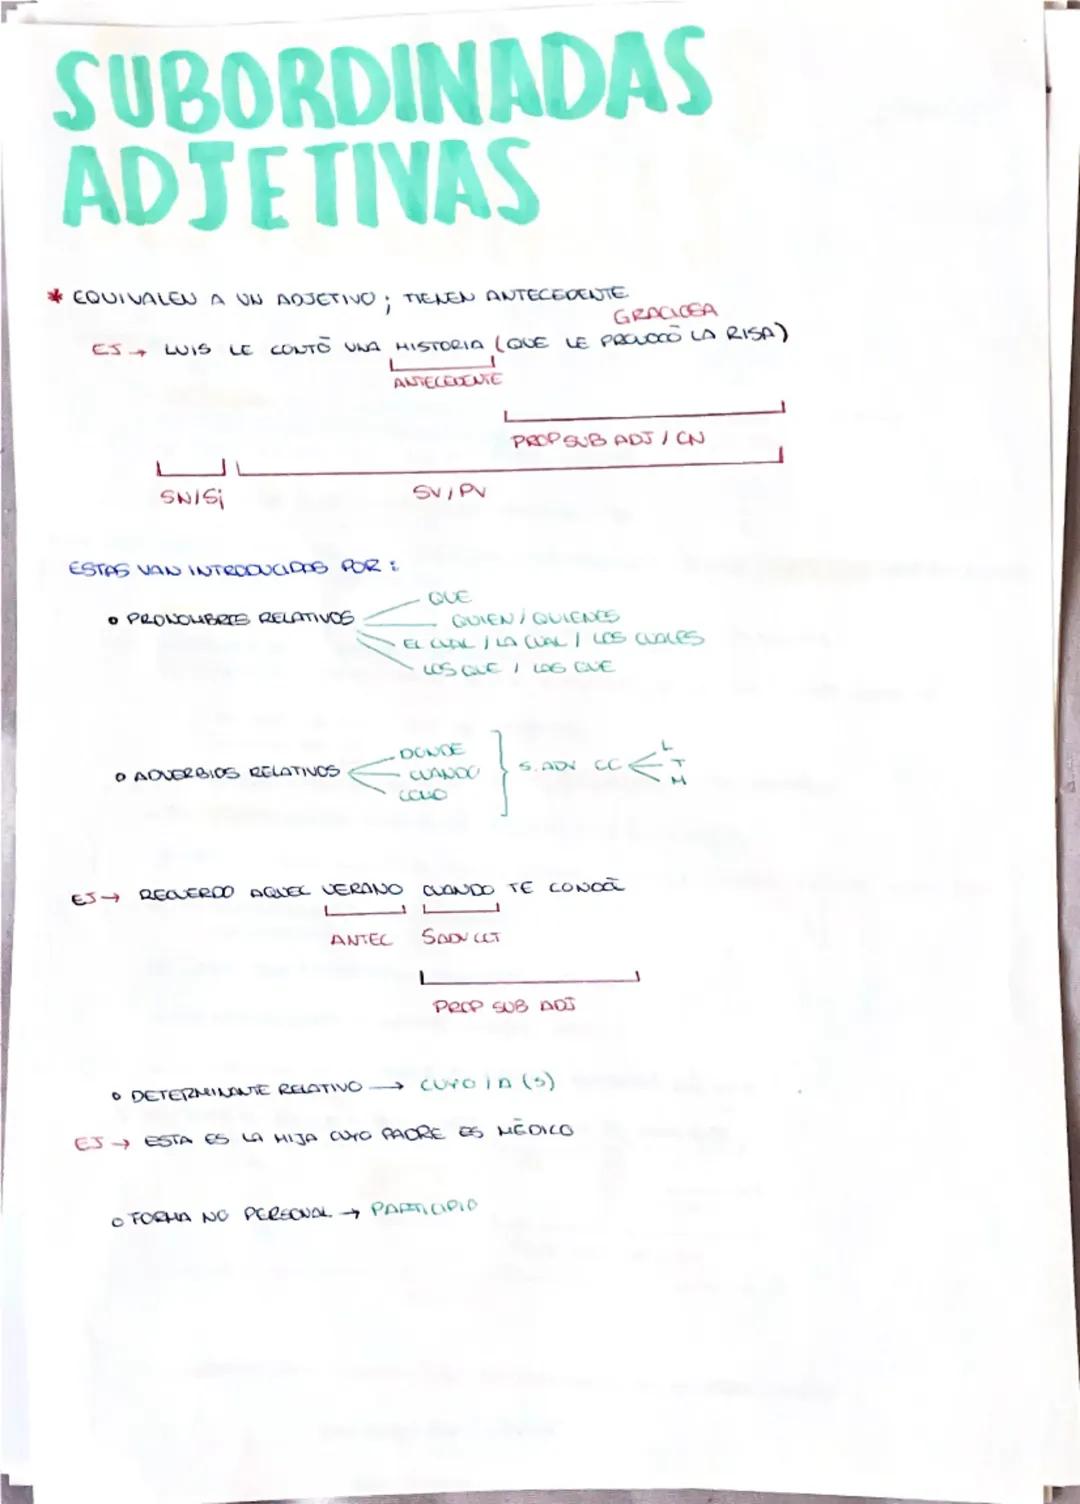 SUBORDINADAS
ADJETIVAS
* EQUIVALEN A UN ADJETIVO; TIENEN ANTECEDENTE
GRACIOSA
EJ → LUIS LE CONTÓ UNA HISTORIA (QUE LE PROVOCÓ LA RISA)
ANTECEDENTE
PROP SUB ADJ / CN
SN/Sj
SV/PV
ESTAS VAN INTRODUCIDAS POR:
• PRONOMBRES RELATIVOS
QUE
QUIEN / QUIENES
EL CUAL / LA CUAL / LOS CUALES
LOS QUE / LAS QUE
• ADVERBIOS RELATIVOS
DONDE
CUANDO
COMO
S. ADV CC
L
T
M
EJ → RECUERDO AQUEL VERANO CUANDO TE CONOCÍ
ANTEC SADV CCT
PROP SUB ADJ
• DETERMINANTE RELATIVO → CUYO / A (S)
EJ → ESTA ES LA HIJA CUYO PADRE ES MÉDICO
• FORMA NO PERSONAL → PARTICIPIO